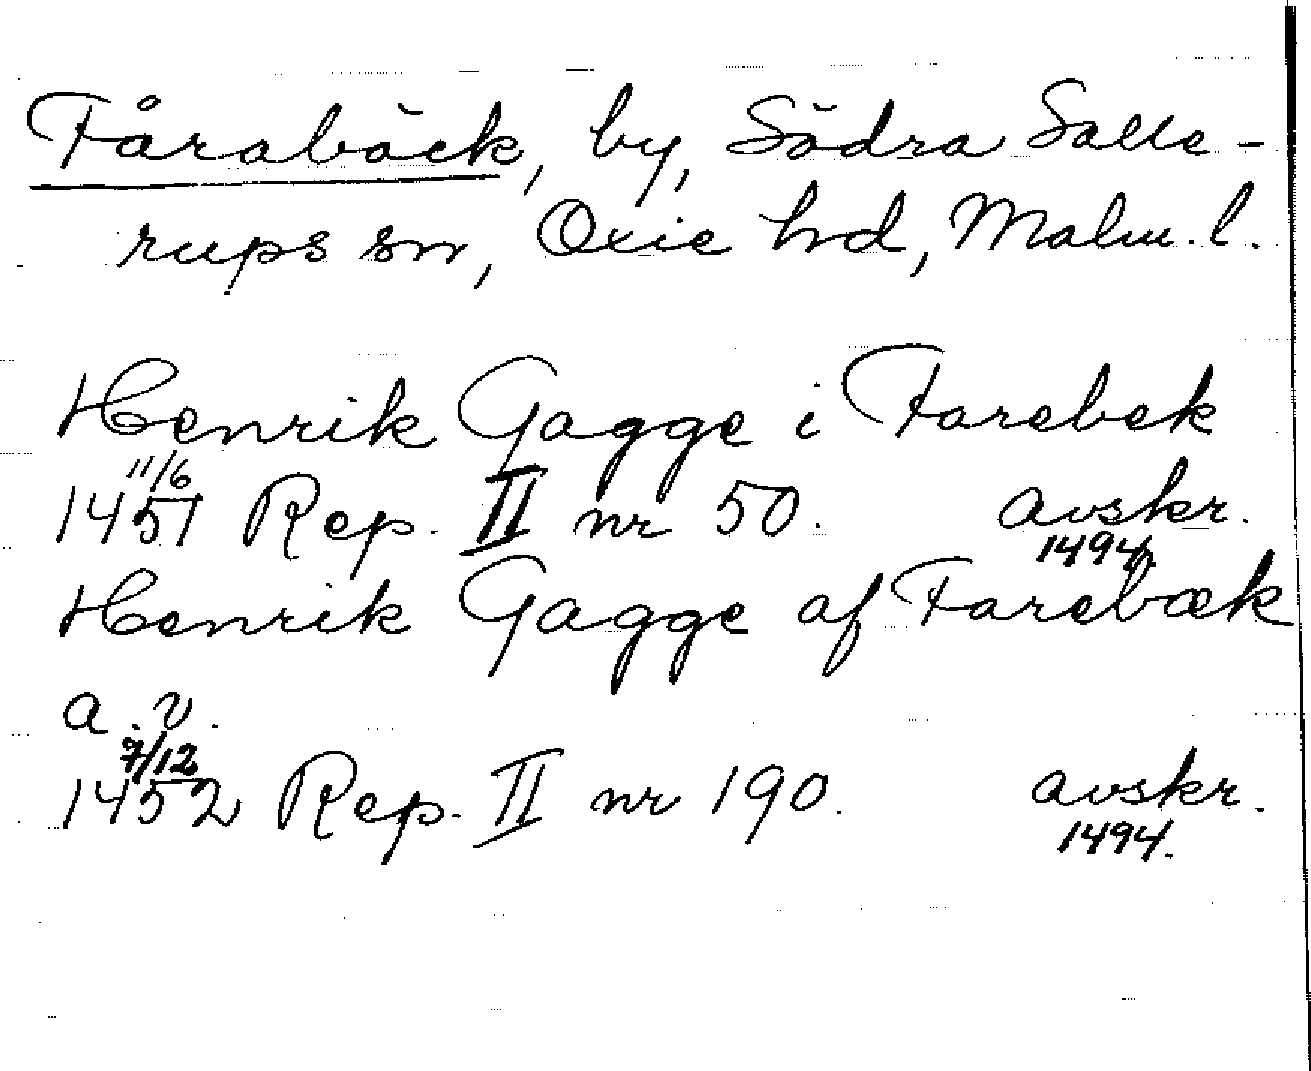 Fåraböck, by, Södra Salle-
rups sn, Oxie hd, Malm. l.
Henrik Gagge i Farebek
11/6
1451 Rep. II nr 50. avskr.
1494
Henrik Gagge af Farebæk
a.v.
7/12
1452 Rep. II nr 190. avskr.
1494.